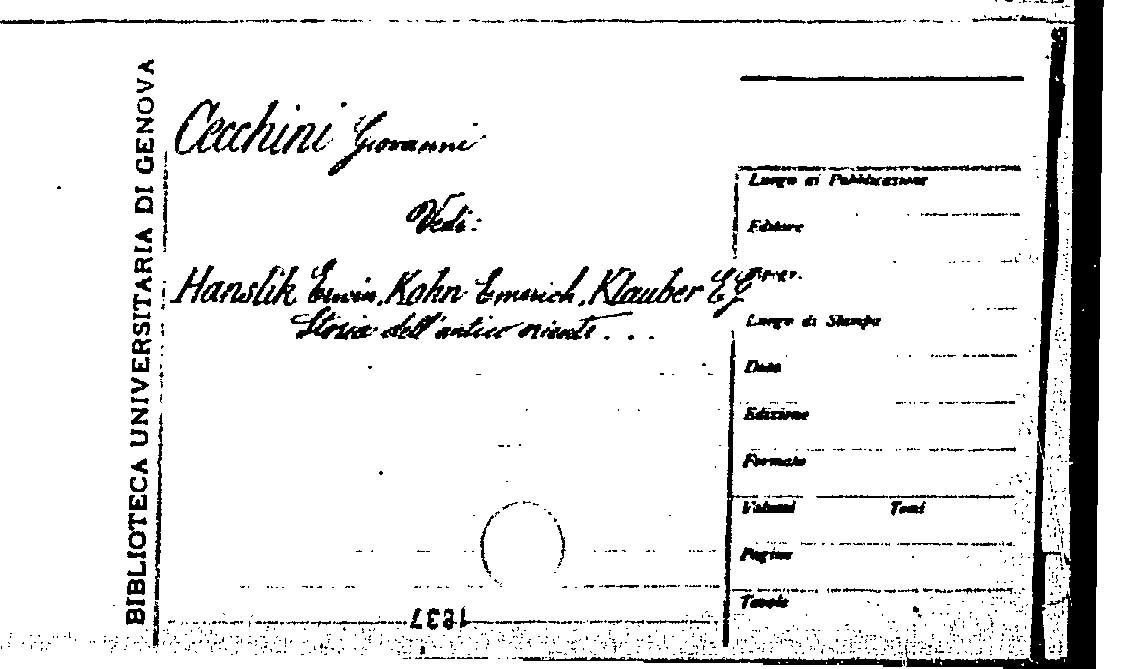 BIBLIOTECA UNIVERSITARIA DI GENOVA
Cecchini Giovanni
Vedi:
Hanslik Erwin, Kohn Emerich, Klauber E G
Storia dell'antico oriente . . .
Luogo di Pubblicazione
Editore
Luogo di Stampa
Data
Edizione
Formato
Volumi Tomi
Pagine
Tavole
1837